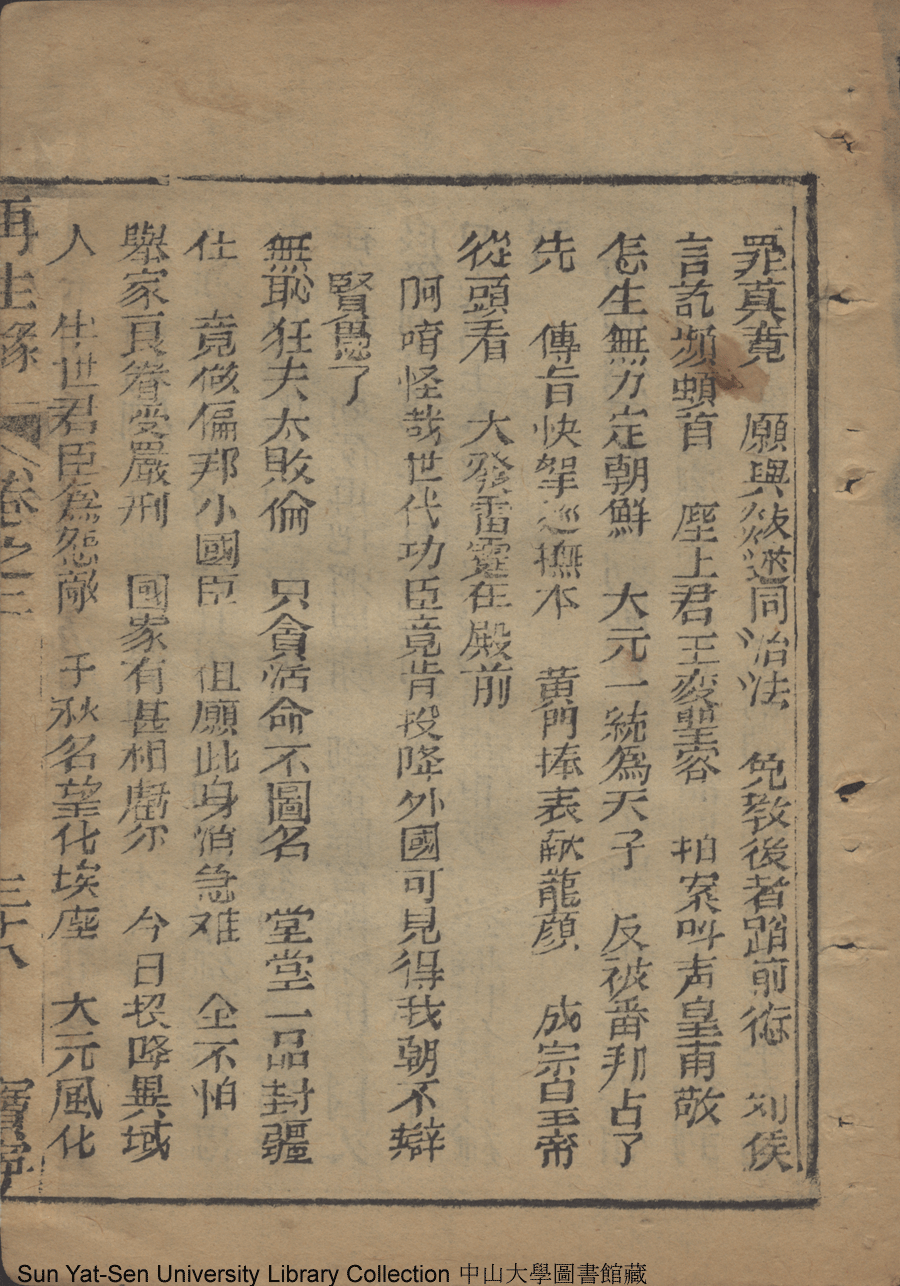 罪真竟 願與 同治法 免教後者蹈前術 列侯
言訖頻頓首 塵上君王变聖容 拍案呌声皇甫敬
怎生無力定朝鮮 大元一統為天子 反被番邦占了
先 傳旨快拏巡撫本 黄門捧表献龍顔 成宗皇帝
從頭看 大發雷霆在殿前
阿唷怪哉世代功臣竟肯投降外國可見得我朝不辯
賢愚了
無恥狂夫太敗倫 只貪活命不圖名 堂堂一品封疆
仕 竟做偏邦小國臣 但願此身消急难 全不怕
舉家良眷受嚴刑 國家有甚相虧尔 今日投降異域
人 生世君臣為怨敵 千秋名望化埃塵 大元風化
再生緣 卷之三 三十八
Sun Yat-Sen University Library Collection 中山大學圖書館藏